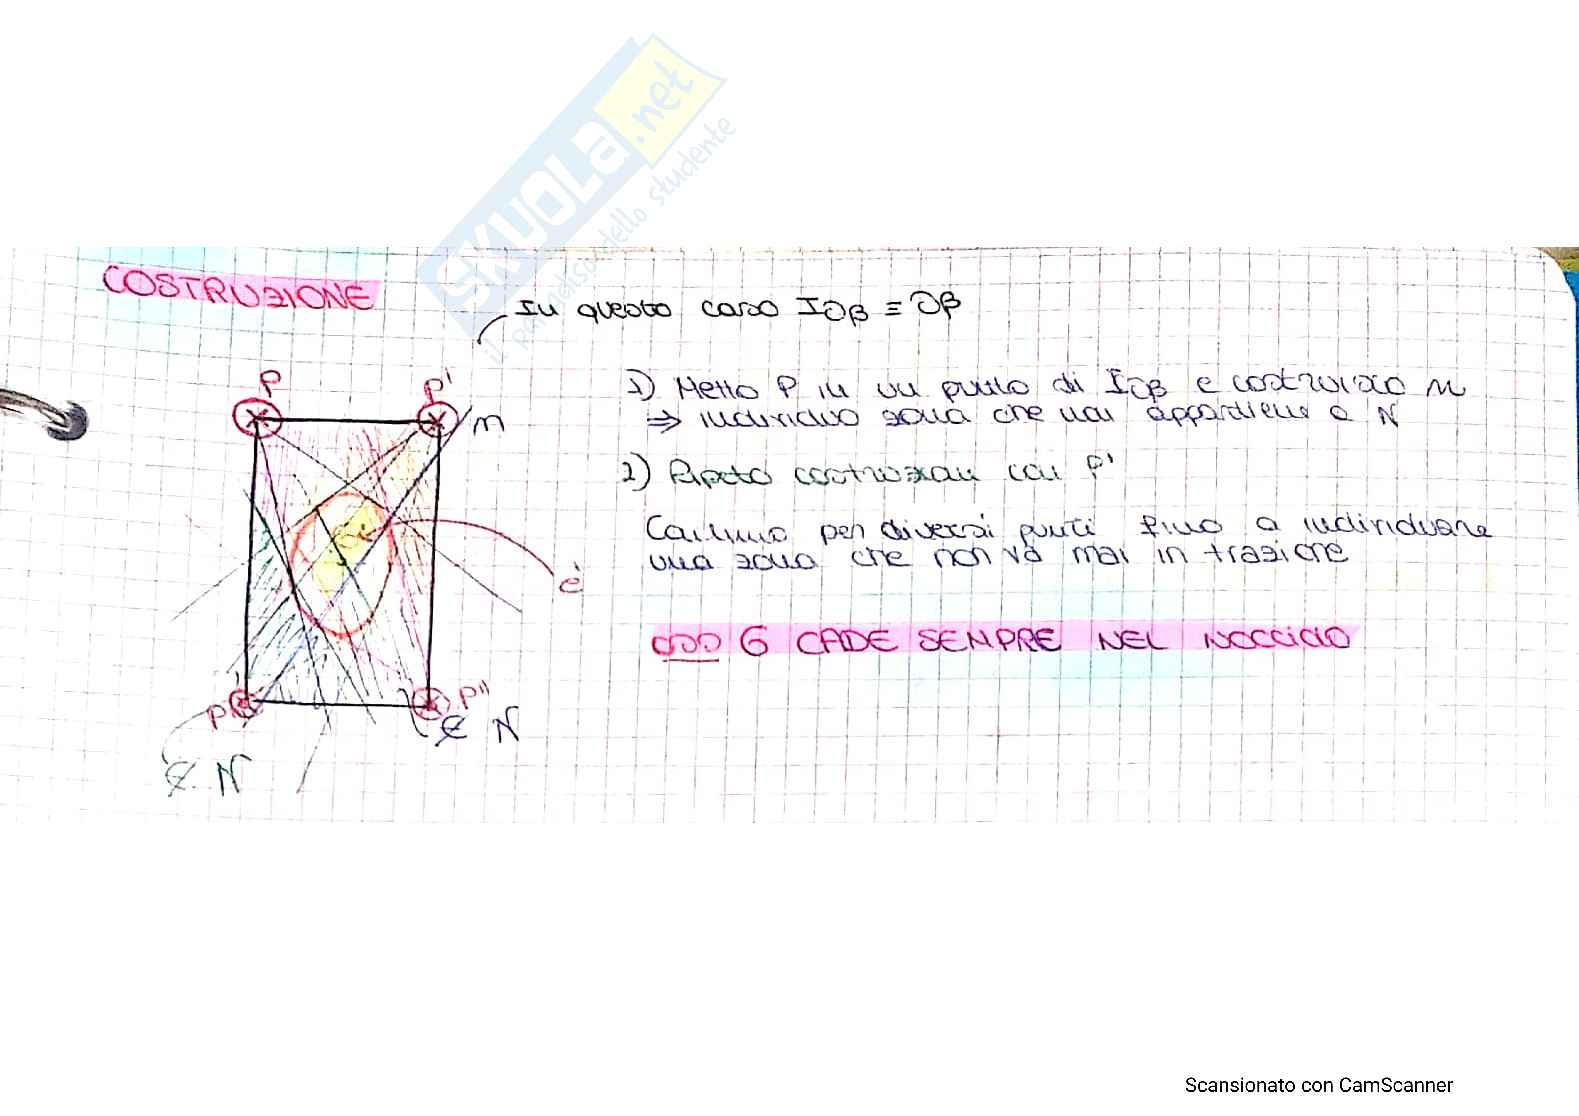 SKUOLA.net
il paradiso dello studente
COSTRUZIONE
In questo caso I∂β ≡ ∂β
P
P'
m
1) Metto P in un punto di I∂β e costruisco n
⇒ individuo zona che non appartiene a N
2) Ripeto costruzioni con P'
Continuo per diversi punti fino a individuare
una zona che non va mai in trazione
è
G CADE SEMPRE NEL NOCCIOLO
P
P''
∉ N
∉ N
Scansionato con CamScanner